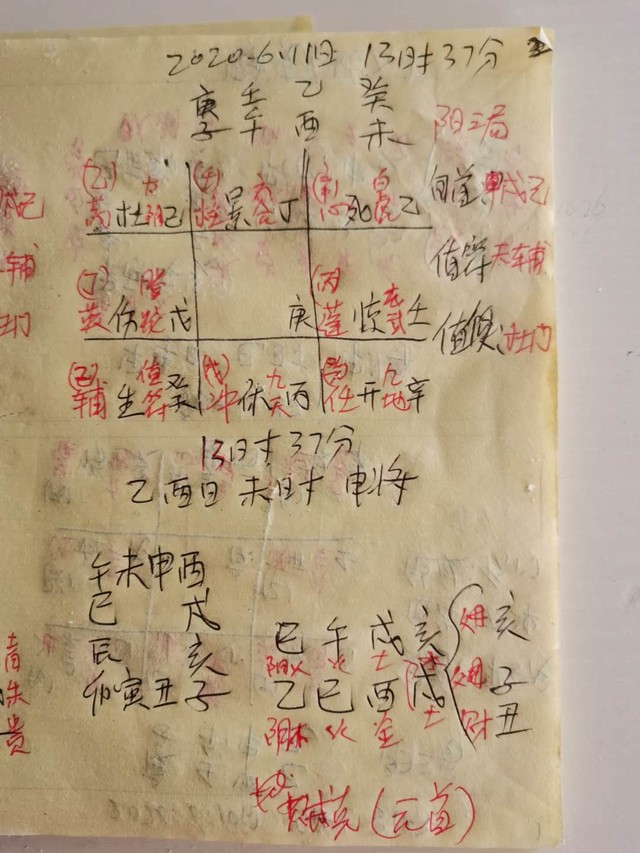 2020.6.11日 13时37分
庚 壬 乙 癸
子 午 酉 未 阳三局
(乙) 杜 己 景 六合 丁 心 死 白虎 乙 旬首 甲戌己
值符 天辅
(丁) 伤 螣蛇 戊 庚 (丙) 蓬 惊 玄武 壬
值使 杜门
辅 生 值符 癸 (戊) 冲 休 九天 丙 任 开 九地 辛
己
辅
门
13时37分
乙酉日 未时 申将
午未申酉
巳 戌
辰 亥
卯寅丑子
巳 午 戌 亥
火 土
乙 巳 酉 戌
阴木 火 金 土
亥
子
丑
财
青
朱
贵
(元首)